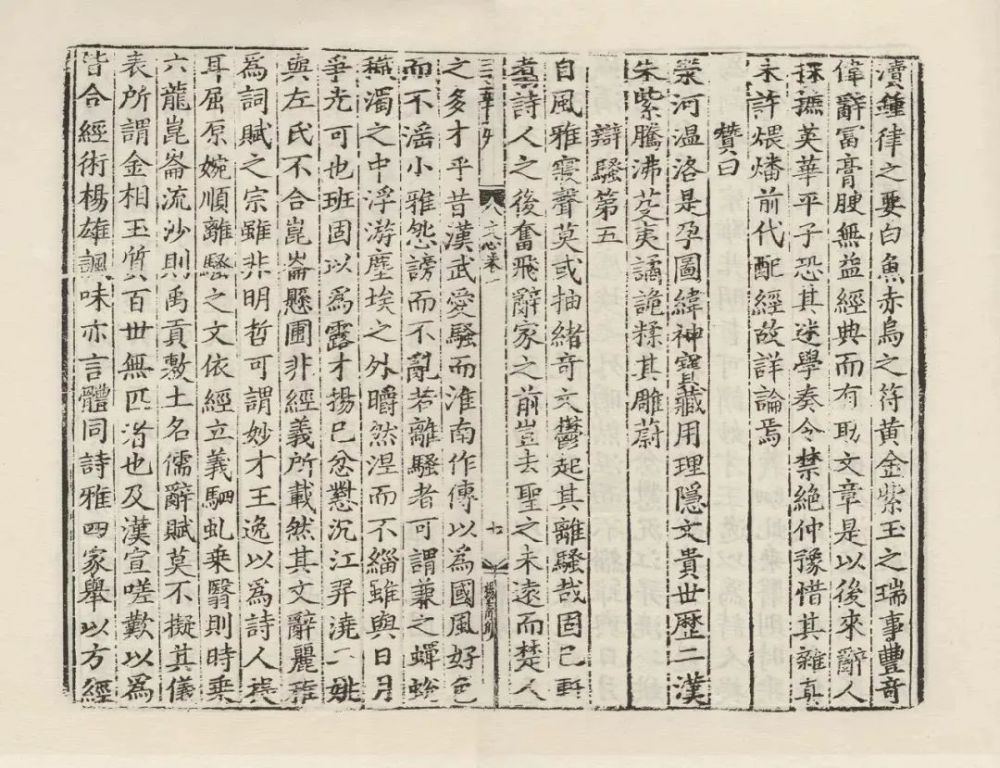 瀆鍾律之要白魚赤烏之符黄金紫玉之瑞事豐奇
偉辭富膏腴無益經典而有助文章是以後來辭人
採摭英華平子恐其迷學奏令禁絕仲豫惜其雜真
未許煨燔前代配經故詳論焉
贊曰
榮河温洛是孕圖緯神寶藏用理隱文貴世歷二漢
朱紫騰沸芟夷譎詭糅其雕蔚
辯騷第五
自風雅寢聲莫或抽緒奇文鬱起其離騷哉固已軒
翥詩人之後奮飛辭家之前豈去聖之未遠而楚人
文心卷一
之多才乎昔漢武愛騷而淮南作傳以為國風好色
而不滛小雅怨謗而不亂若離騷者可謂兼之蟬蛻
穢濁之中浮游塵埃之外皭然涅而不緇雖與日月
爭光可也班固以爲露才揚己忿懟沉江羿澆二姚
與左氏不合崑崙懸圃非經義所載然其文辭麗雅
爲詞賦之宗雖非明哲可謂妙才王逸以爲詩人提
耳屈原婉順離騷之文依經立義駟虬乘翳則時乘
六龍崑崙流沙則禹貢敷土名儒辭賦莫不擬其儀
表所謂金相玉質百世無匹者也及漢宣嗟歎以爲
皆合經術楊雄諷味亦言體同詩雅四家舉以方經